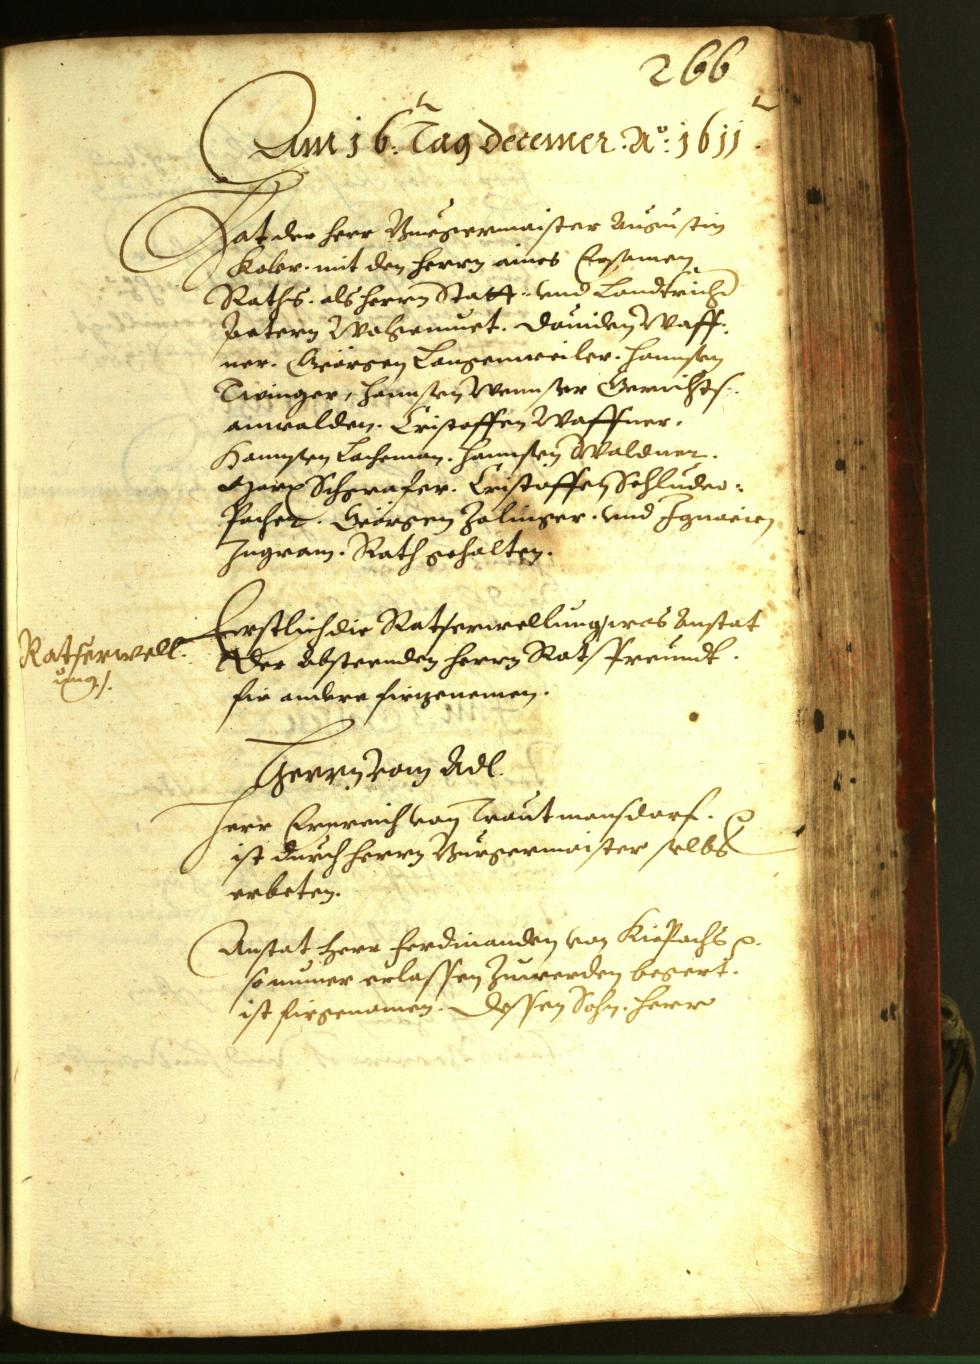 266
Am 16. Tag Decemer: Aº: 1611.
Hat der Herr Burgermaister Augustin
Kober. mit den Herrn aines Ersamen
Raths. als Herrn Statt- und Landtrichter
Petern Wolgemuet. Daniden Waff-
ner. Georgen Langenweiler. Hannsen
Tivinger, Hannsen Wennser Gerichts-
anwalden. Cristoffen Waffner.
Hannsen Lacheman. Hannsen Waldner.
Marx Schgrafer. Cristoffen Schluder-
pacher. Georgen Zalinger. und Ignacien
Ingram. Rath gehalten.
Ratserwell-
ung.
Erstlich die Ratserwellung, was Anstat
der absterenden Herrn Rats Freundt.
fir andere firgenomen.
Herrn vom Adl.
Herr Ernreich von Trautmansdorf. p
ist durch Herrn Burgermaister selbs
erbeten.
Anstat Herr Ferdinanden von Kiepachs p.
so nuner erlassen zuwerden begert.
ist firgenomen. dessen Sohn. Herr